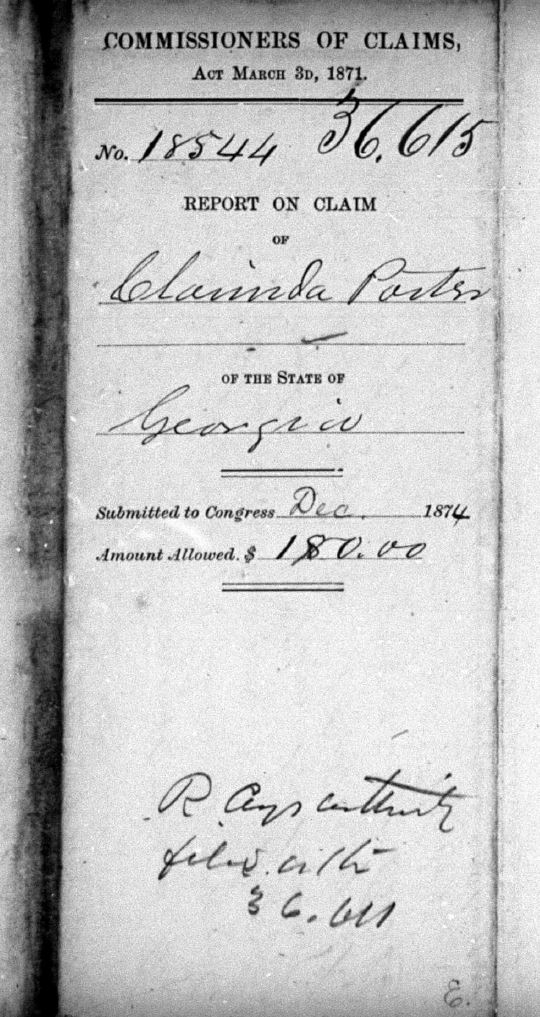 COMMISSIONERS OF CLAIMS,
ACT MARCH 3D, 1871.
No. 18544 36.615
REPORT ON CLAIM
OF
Clarinda Porter
OF THE STATE OF
Georgia
Submitted to Congress Dec. 1874
Amount Allowed. $ 180.00
R
filed with
36.611
E.